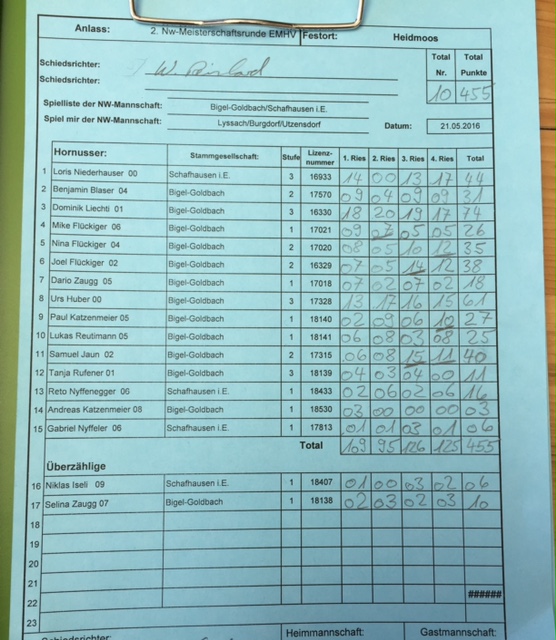 Anlass: 2. Nw-Meisterschaftsrunde EMHV Festort: Heidmoos
Schiedsrichter: W.
Schiedsrichter:
Total Nr. Total Punkte
10 455
Spielliste der NW-Mannschaft: Bigel-Goldbach/Schafhausen i.E.
Spiel mir der NW-Mannschaft: Lyssach/Burgdorf/Utzensdorf Datum: 21.05.2016
Hornusser: Stammgesellschaft: Stufe Lizenz-nummer 1. Ries 2. Ries 3. Ries 4. Ries Total
1 Loris Niederhauser 00 Schafhausen i.E. 3 16933 14 00 13 17 44
2 Benjamin Blaser 04 Bigel-Goldbach 2 17570 09 04 09 09 31
3 Dominik Liechti 01 Bigel-Goldbach 3 16330 18 20 19 17 74
4 Mike Flückiger 06 Bigel-Goldbach 1 17021 09 07 05 05 26
5 Nina Flückiger 04 Bigel-Goldbach 2 17020 08 05 10 12 35
6 Joel Flückiger 02 Bigel-Goldbach 2 16329 07 05 14 12 38
7 Dario Zaugg 05 Bigel-Goldbach 1 17018 07 02 07 02 18
8 Urs Huber 00 Bigel-Goldbach 3 17328 13 17 16 15 61
9 Paul Katzenmeier 05 Bigel-Goldbach 1 18140 02 09 06 10 27
10 Lukas Reutimann 05 Bigel-Goldbach 1 18141 06 08 03 08 25
11 Samuel Jaun 02 Bigel-Goldbach 2 17315 06 08 15 11 40
12 Tanja Rufener 01 Bigel-Goldbach 3 18139 04 03 04 00 11
13 Reto Nyffenegger 06 Schafhausen i.E. 1 18433 02 06 02 06 16
14 Andreas Katzenmeier 08 Bigel-Goldbach 1 18530 03 00 00 00 03
15 Gabriel Nyffeler 06 Schafhausen i.E. 1 17813 01 01 03 01 06
Total 109 95 126 125 455
Überzählige
16 Niklas Iseli 09 Schafhausen i.E. 1 18407 01 00 03 02 06
17 Selina Zaugg 07 Bigel-Goldbach 1 18138 02 03 02 03 10
18
19
20
21
22 ######
23
Schiedsrichter: Heimmannschaft: Gastmannschaft: